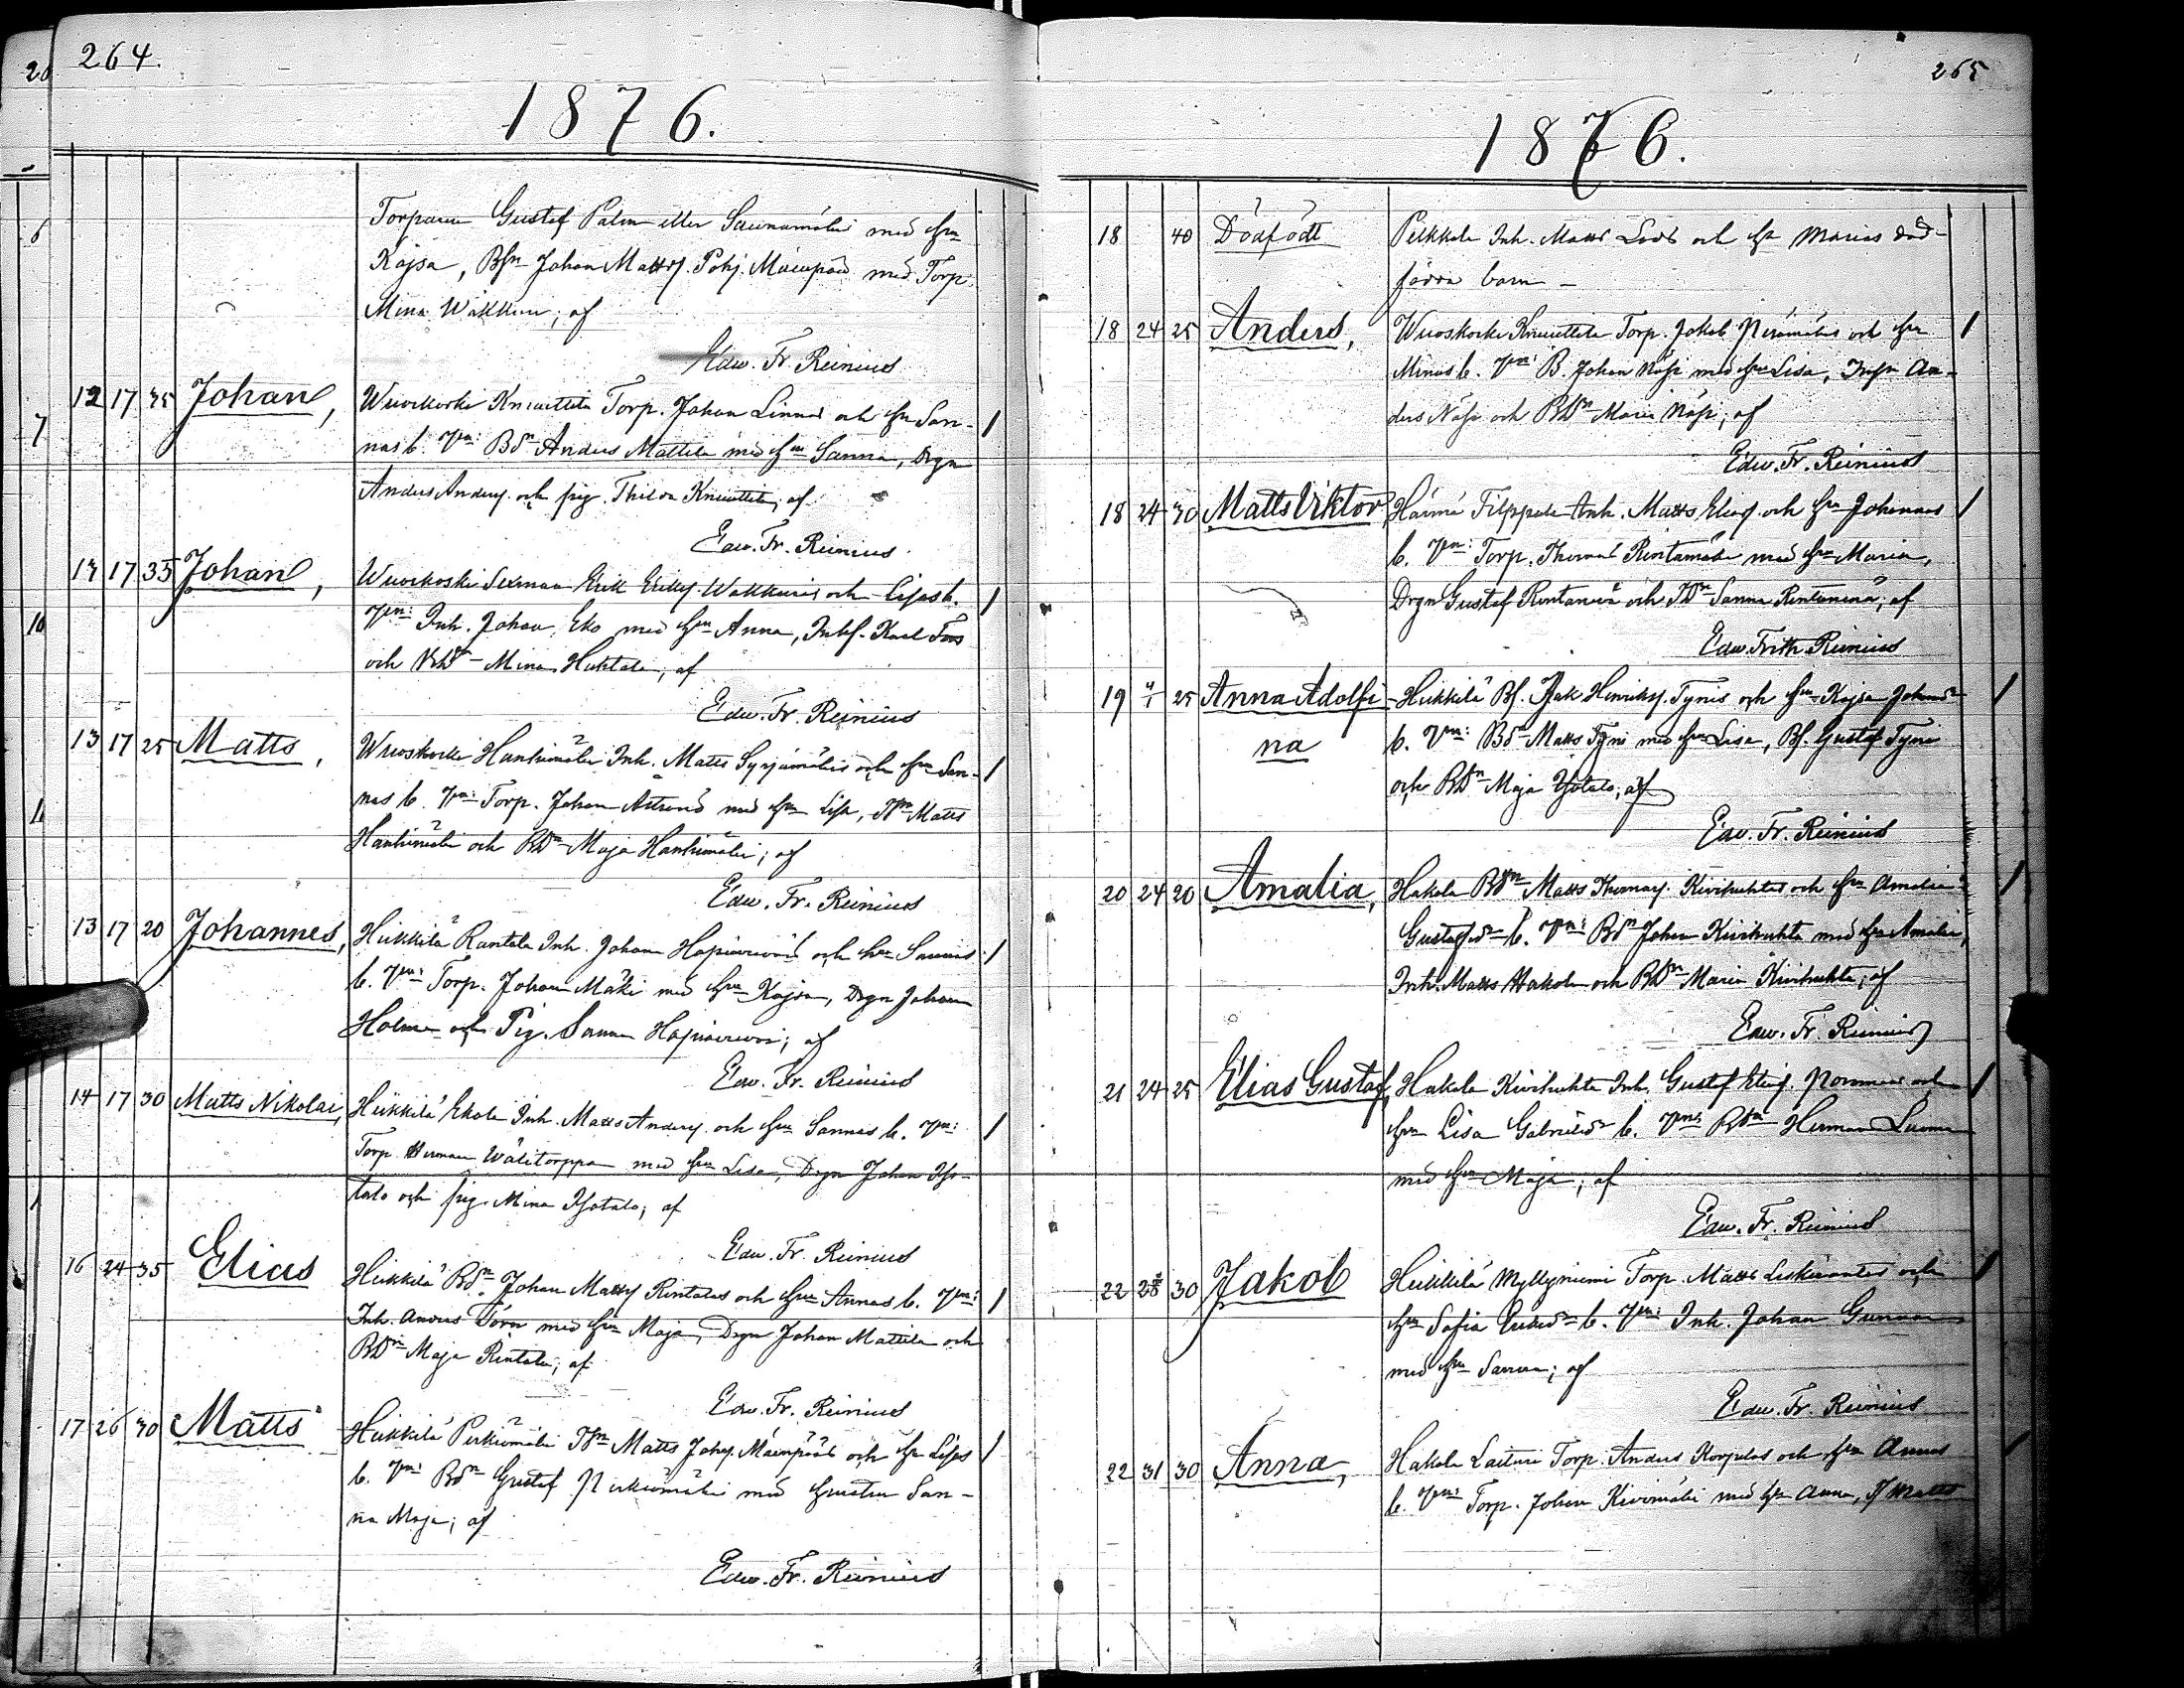 264.
1876.
Torparen Gustaf Palm eller Saunamäki med hru
Kajsa, Bsn Johan Mattsf. Pohj. Mäenpää med Torp.
Mina Wäkkuri; af
Edw. Fr. Reinius
12 17 35 Johan, Wuoskoski Knuuttila Torp. Johan Linnas och hru San-
nas b. Vn: Bdn Anders Mattila med hru Sanna, Drgn
Anders Andersf. och pig. Thilda Knuuttila; af
Edw. Fr. Reinius
17 35 Johan, Wuoskoski Sexman Erik Eriksf. Wäkkuris och Lisas b.
Vn: Inh. Johan Eko med hru Anna, Karl
och Mina Huhtala; af
Edw. Fr. Reinius
13 17 25 Matts, Wuoskoski Hanhimäki Inh. Matts Syrjämäkis och hru San-
nas b. Vn: Torp. Johan med hru Lisa, Matts
Hanhimäki och BDn Maja Hanhimäki; af
Edw. Fr. Reinius
13 17 20 Johannes, Heikkilä Rantala Inh. Johan och hru Sannas
b. Vn: Torp. Johan Mäki med hru Kajsa, Drgn Johan
Holm och Pig. Sanna; af
Edw. Fr. Reinius
14 17 30 Matts Nikolai, Heikkilä Ekola Inh. Matts Andersf. och hru Sannas b. Vn:
Torp. Herman Wälitorppa med hru Lisa, Drgn Johan Yso-
talo och pig. Mina Ysotalo; af
Edw. Fr. Reinius
16 24 35 Elias Heikkilä Bdn Johan Mattsf. Rintalas och hru Annas b. Vn:
Inh. Anders med hru Maja, Drgn Johan Mattila och
BDn Maja Rintala; af
Edw. Fr. Reinius
17 26 30 Matts Heikkilä Perkiömäki Matts Johsf. Mäenpääs och hru Lisas
b. Vn: Bdn Gustaf Perkiömäki med hustru San-
na Maja; af
Edw. Fr. Reinius
265
1876.
18 40 Dödfödt Pelkkala Inh. Matts och hru Marias död-
födda barn
18 24 25 Anders, Wuoskoski Knuuttila Torp. Jakob Perämäkis och hru
Minas b. Vn: B. Johan Näsi med hru Lisa, An-
ders Näsi och BDn Maria Näsi; af
Edw. Fr. Reinius
18 24 30 Matts Viktor, Härmä Filppula Inh. Matts Eliasf. och hru Johannas
b. Vn: Torp. Thomas Rintamäki med hru Maria,
Drgn Gustaf och Sanna; af
Edw. Frith. Reinius
19 25 Anna Adolfi- Heikkilä Bs. Isak Henriksf. Tynis och hru Kajsa Johansdr
na b. Vn: Bdn Matts Tyni med hru Lisa, Bs. Gustaf Tyni
och BDn Maja Ysotalo; af
Edw. Fr. Reinius
20 24 20 Amalia, Hakola Bdn Matts Thomasf. Kivihuhtas och hru Amalia
Gustafsdr b. Vn: Bdn Johan Kivihuhta med hru Amalia,
Inh. Matts Hakola och BDn Maria Kivihuhta; af
Edw. Fr. Reinius
21 24 25 Elias Gustaf, Hakola Kivihuhta Inh. Gustaf Eliasf. och
hru Lisa Gabrielsdr b. Vn: Bdn Herman Luoma
med hru Maja; af
Edw. Fr. Reinius
22 30 Jakob Heikkilä Myllyniemi Torp. Matts och
hru Sofia Eriksdr b. Vn: Inh. Johan
med hru Sanna; af
Edw. Fr. Reinius
22 31 30 Anna, Hakola Laituri Torp. Anders Korpelas och hru Annas
b. Vn: Torp. Johan Kivimäki med hru Anna, Matts